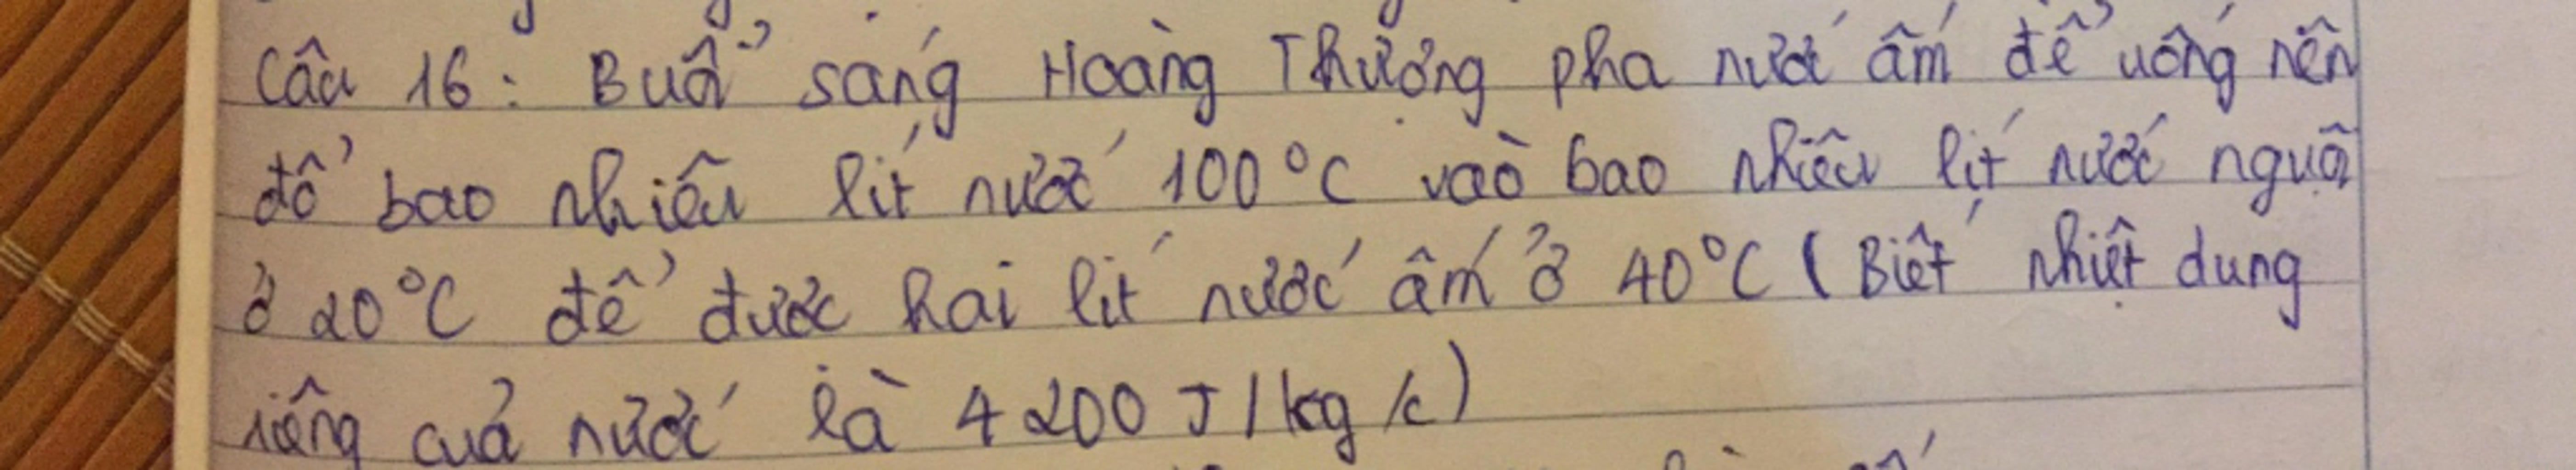 Câu 16: Buổi sáng Hoàng Thượng pha nước ấm để uống nên
đổ bao nhiêu lít nước 100°C vào bao nhiêu lít nước nguội
ở 20°C để được hai lít nước ấm ở 40°C (Biết nhiệt dung
riêng của nước là 4200 J/kg/c)